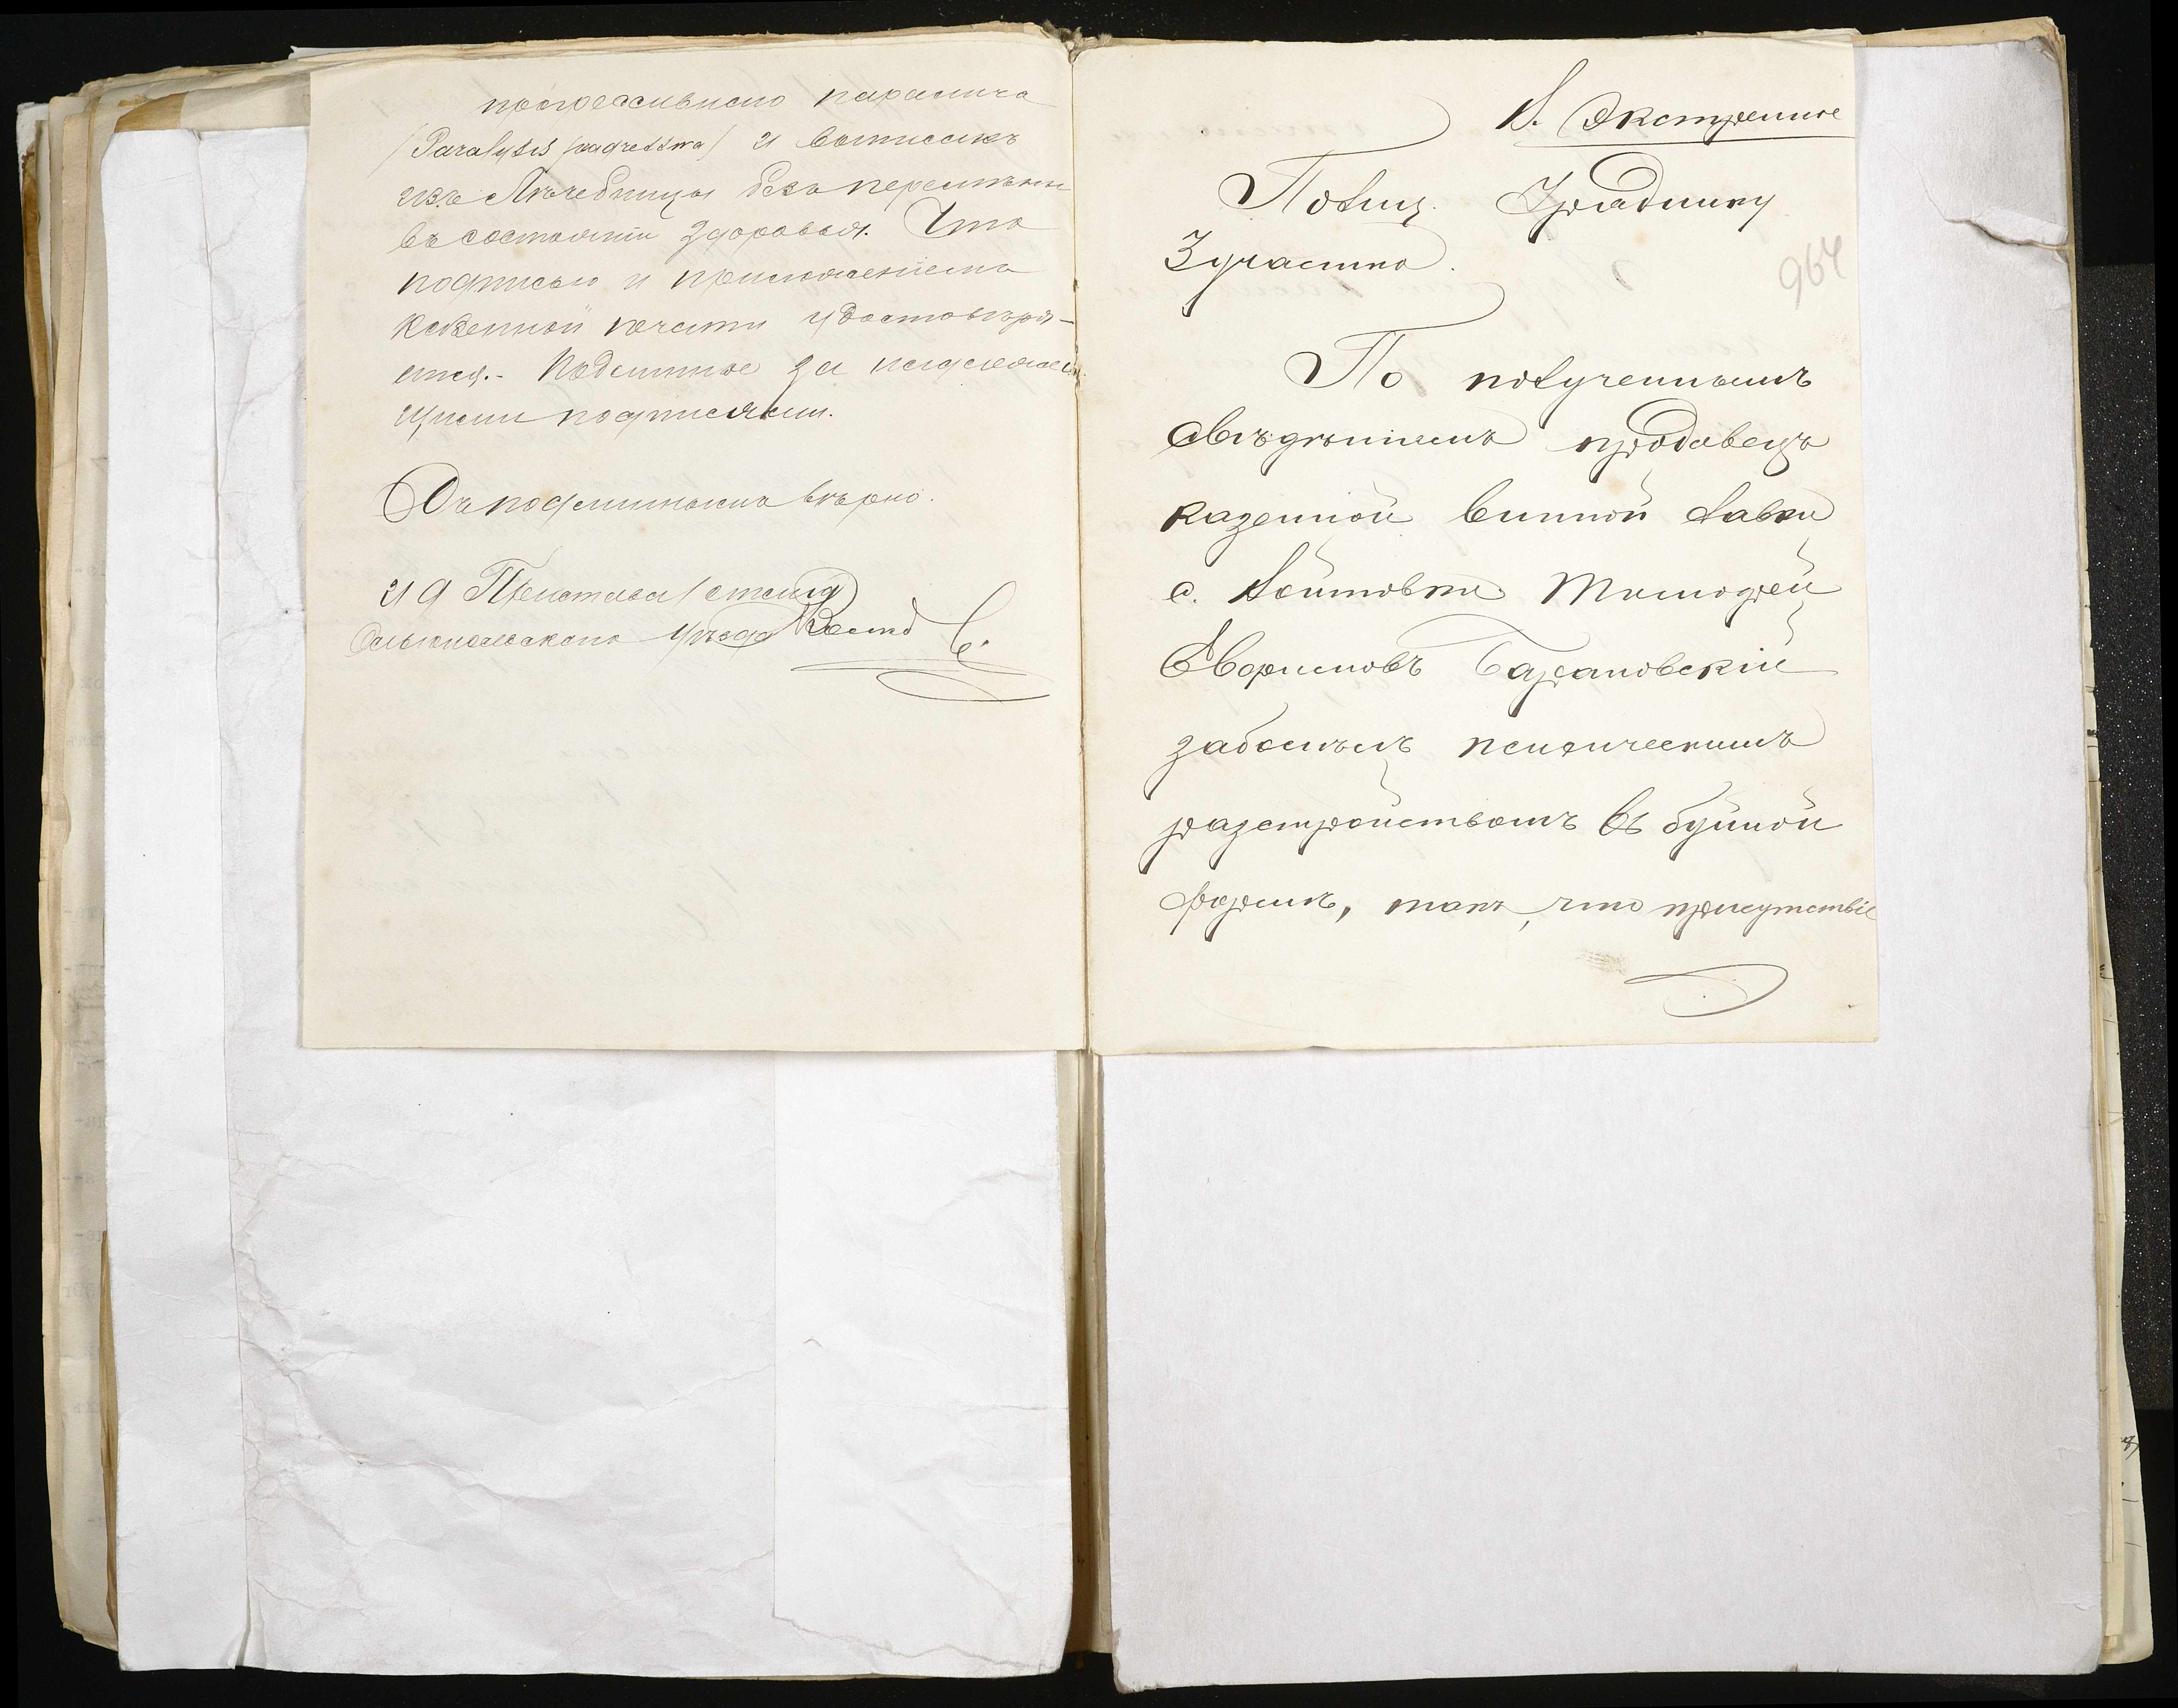 прогрессивного паралича
(Paralysis progressiva) и выписанъ
изъ Лѣчебницы безъ перемѣны
въ состоянiи здоровья. Что
подписью и приложенiемъ
казенной печати удостовѣря-
ется.- Подлинное за надлежа-
щими подписями.
Съ подлиннымъ вѣрно.
И Д Пристава 1 стана
уѣзда
Д. Экстренное
Полиц. Уряднику
3 участка.
964
По полученнымъ
свѣдѣнiямъ продавецъ
казенной винной лавки
с. Войтовки Тимофей
Баарановскiй
заболѣлъ психическимъ
разстройствомъ въ буйной
формѣ, такъ, что присутствiе